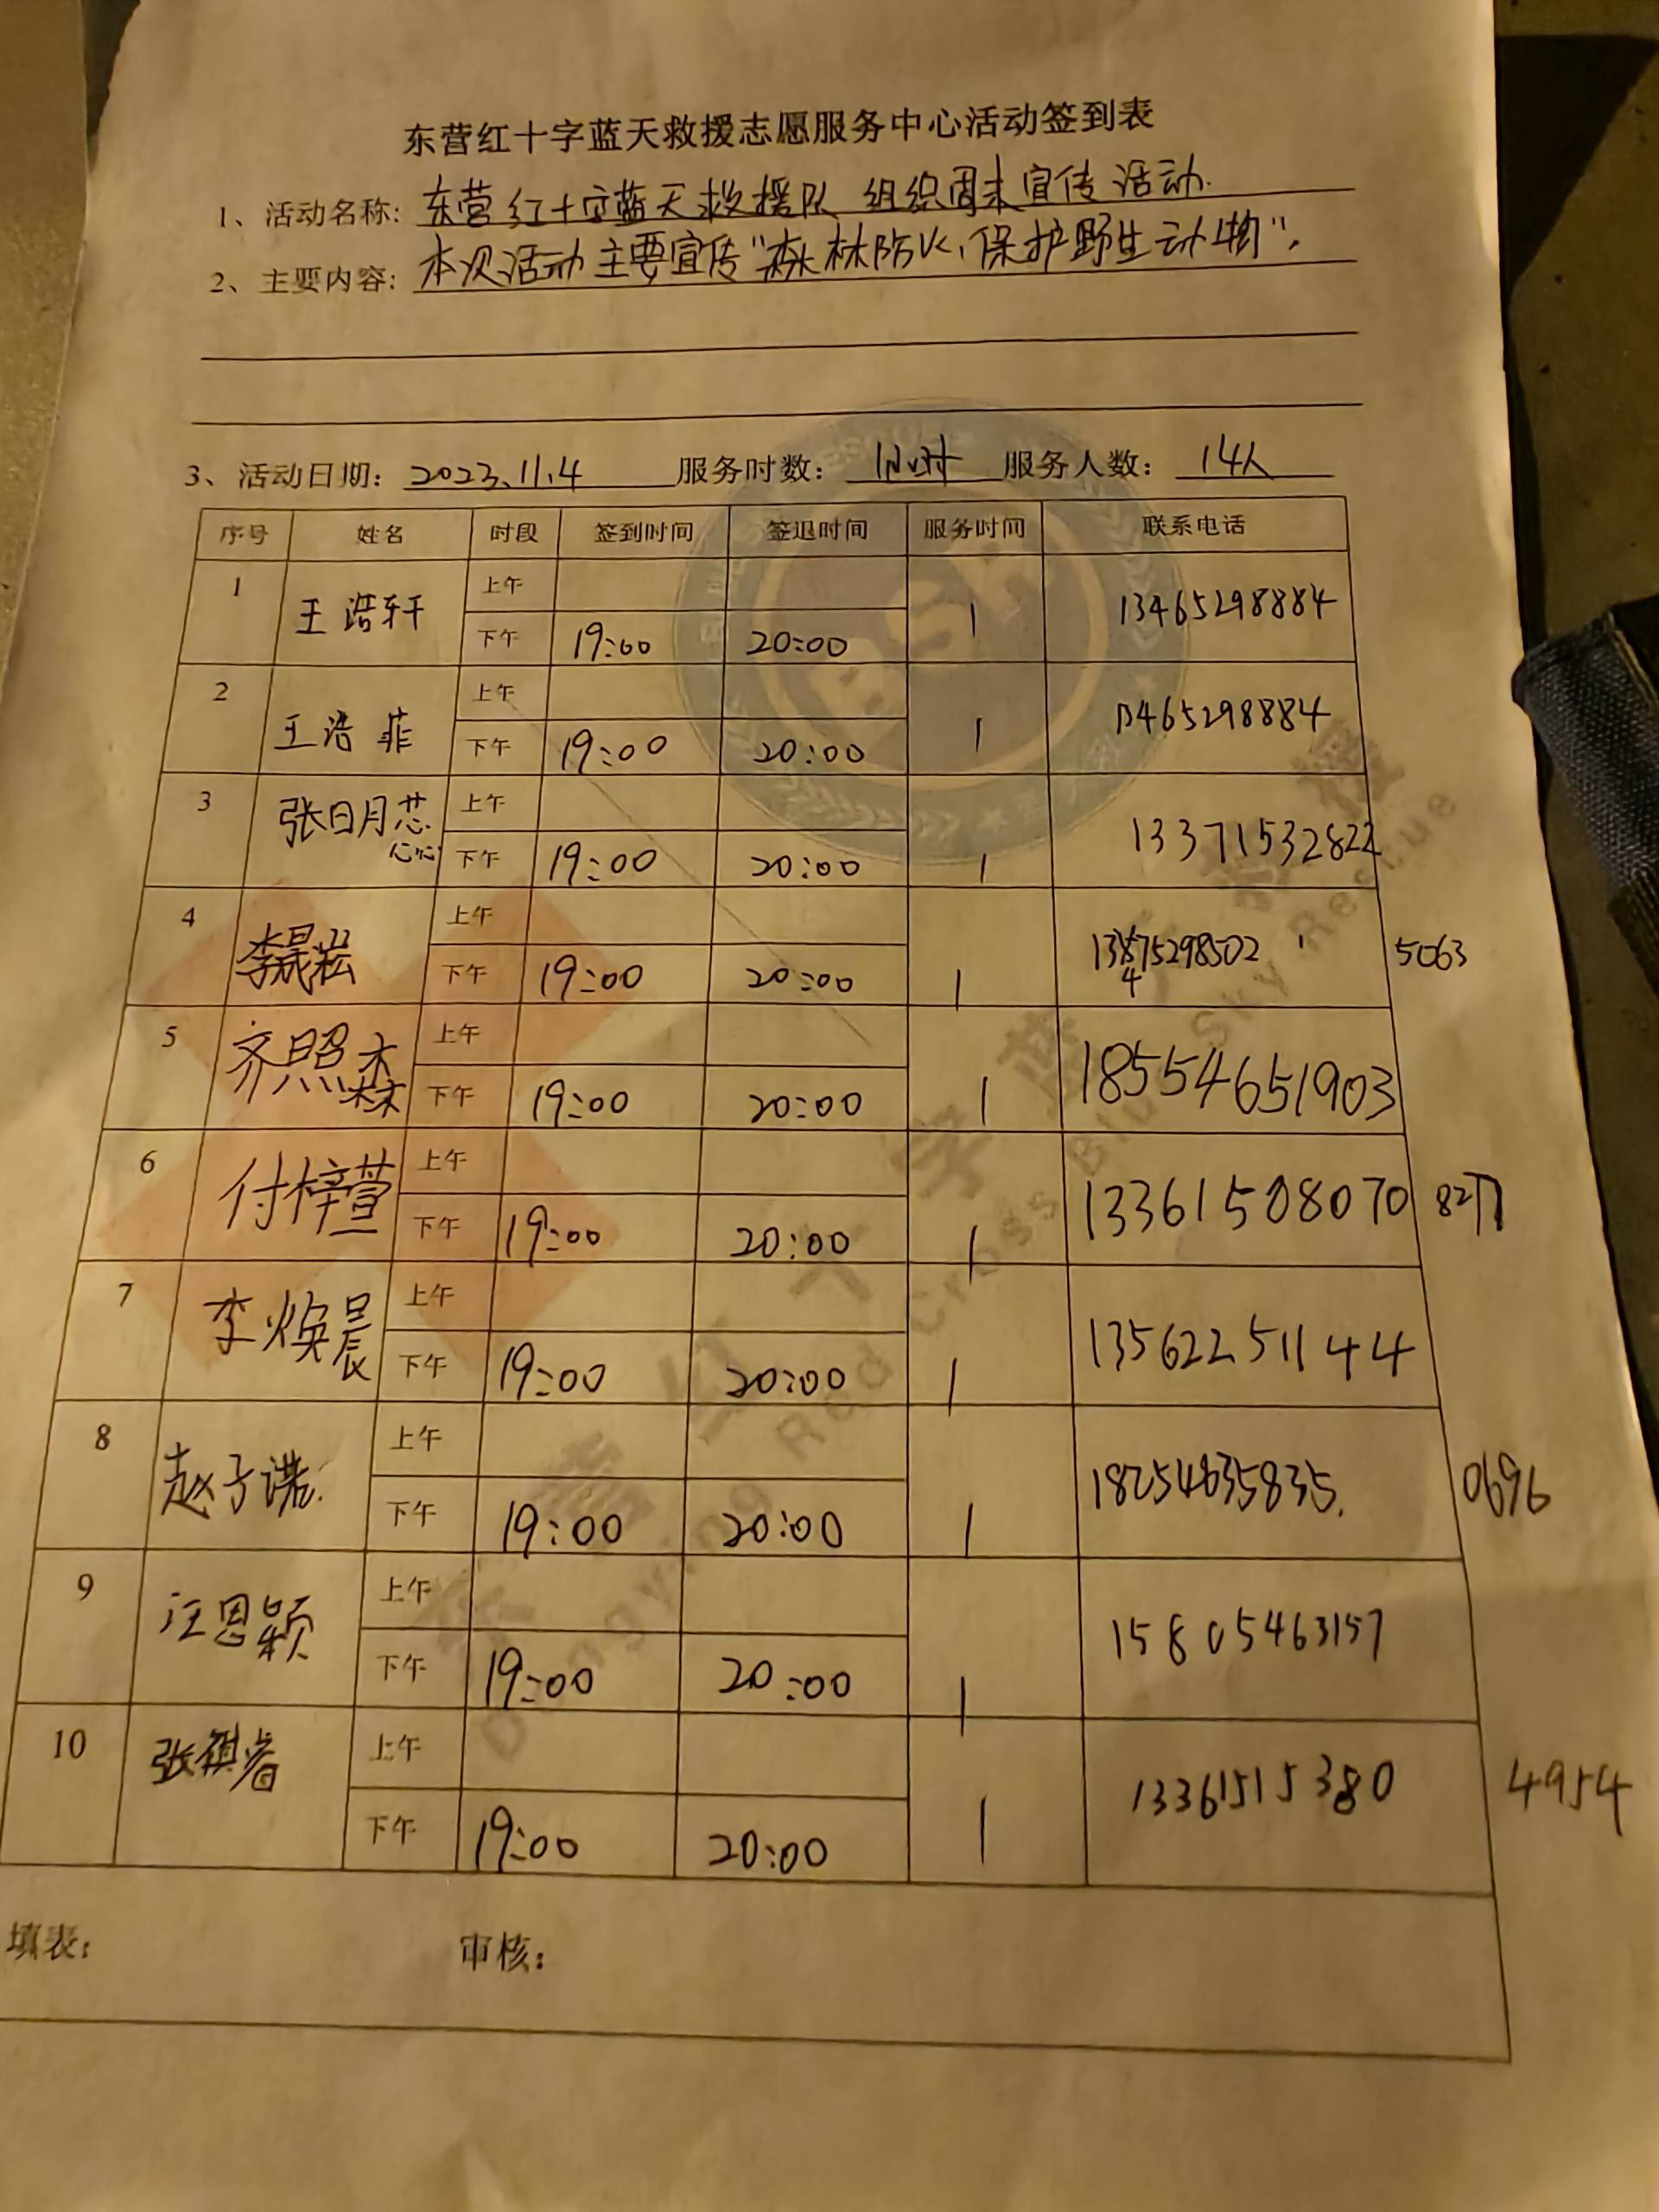 东营红十字蓝天救援志愿服务中心活动签到表
1、活动名称: 东营红十字蓝天救援队 组织周末宣传活动.
2、主要内容: 本次活动主要宣传"森林防火、保护野生动物"。
3、活动日期: 2023.11.4 服务时数: 1小时 服务人数: 14人
序号 姓名 时段 签到时间 签退时间 服务时间 联系电话
1 王浩轩 上午
下午 19:00 20:00 1 13465298884
2 王浩菲 上午
下午 19:00 20:00 1 13465298884
3 张日月芯 上午
下午 19:00 20:00 1 13371532822
4 李晟崧 上午
下午 19:00 20:00 1 5063
5 齐照森 上午
下午 19:00 20:00 1 18554651903
6 付梓萱 上午
下午 19:00 20:00 1 13361508070
7 李焕晨 上午
下午 19:00 20:00 1 13562251144
8 赵子诺 上午
下午 19:00 20:00 1 18254635835. 0696
9 汪思颖 上午
下午 19:00 20:00 1 15805463157
10 张祺睿 上午
下午 19:00 20:00 1 13361515380 4954
填表: 审核:
东营红十字蓝天救援
Dongying Red Cross Blue Sky Rescue
BSR